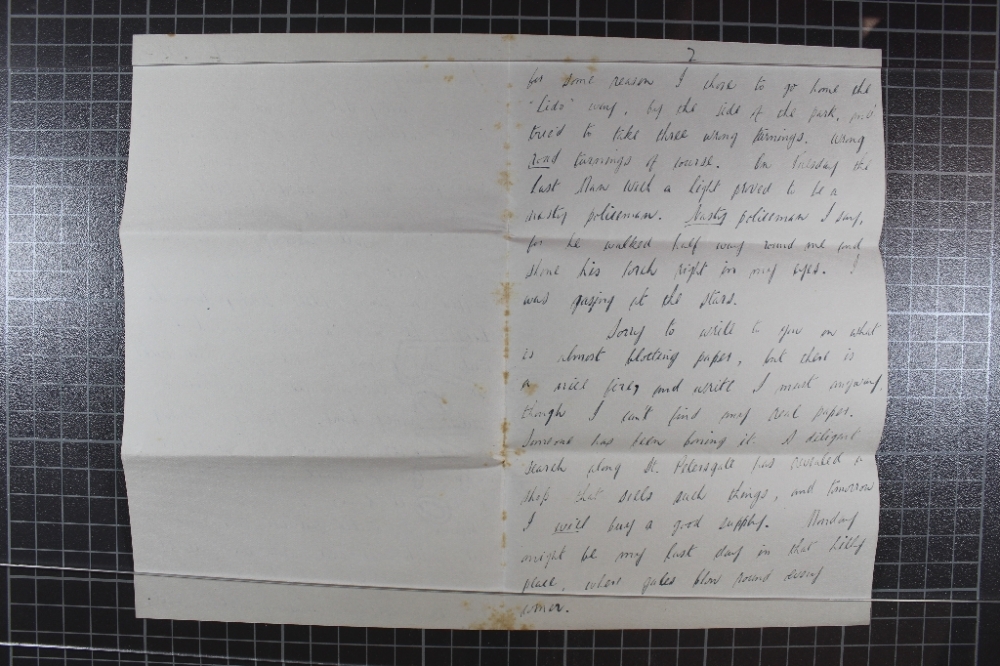 2
for some reason I chose to go home the
"Lido" way, by the side of the park, and
tried to take three wrong turnings. Wrong
road turnings of course. On Tuesday the
last Man with a light proved to be a
nasty policeman. Nasty policeman I say,
for he walked half way round me and
shone his torch right in my eyes. I
was gazing at the stars.
Sorry to write to you on what
is almost blotting paper, but there is
a nice fire, and write I must anyway
though I can't find my real paper.
Someone has been boning it. A diligent
search along St. Petersgate has revealed a
shop that sells such things, and tomorrow
I will buy a good supply. Monday
might be my last day in that hilly
place, where gales blow round every
corner.